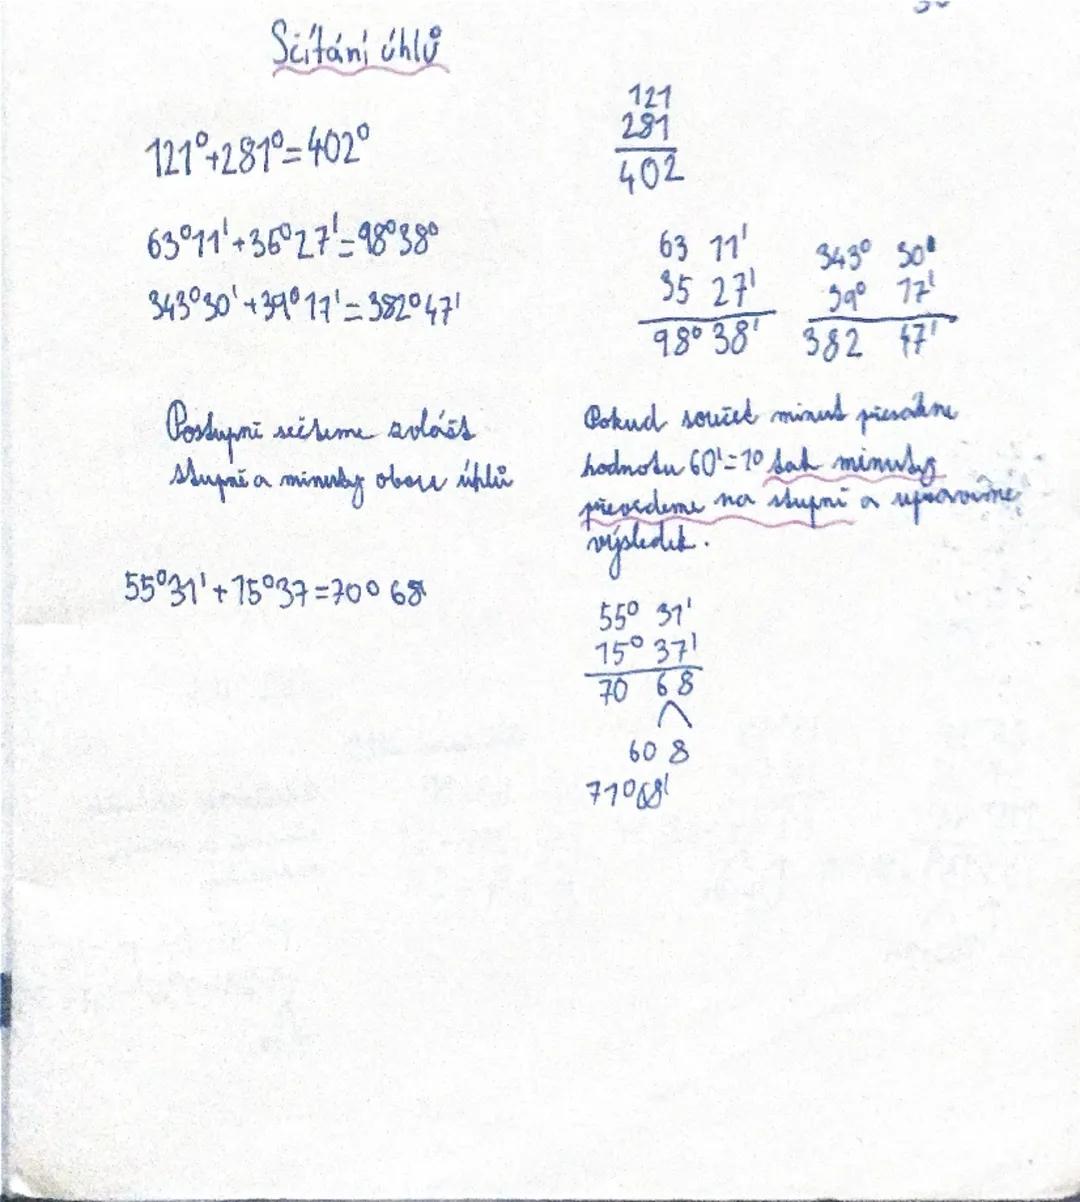 Sčítání úhlů
121°+281°=402°
121
281
402
63°11'+36°27'=98°38°
343°30'+39°17'=382°47'
63 11'
35 27'
98° 38'
343° 30'
39° 17'
382 47'
Postupně sečteme zvlášť
stupně a minuty obou úhlů
Pokud součet minut přesáhne
hodnotu 60'=1° tak minuty
převedeme na stupně a upravíme
výsledek.
55°31'+15°37=70° 68
55° 31'
15° 37'
70 68
60 8
71°8'